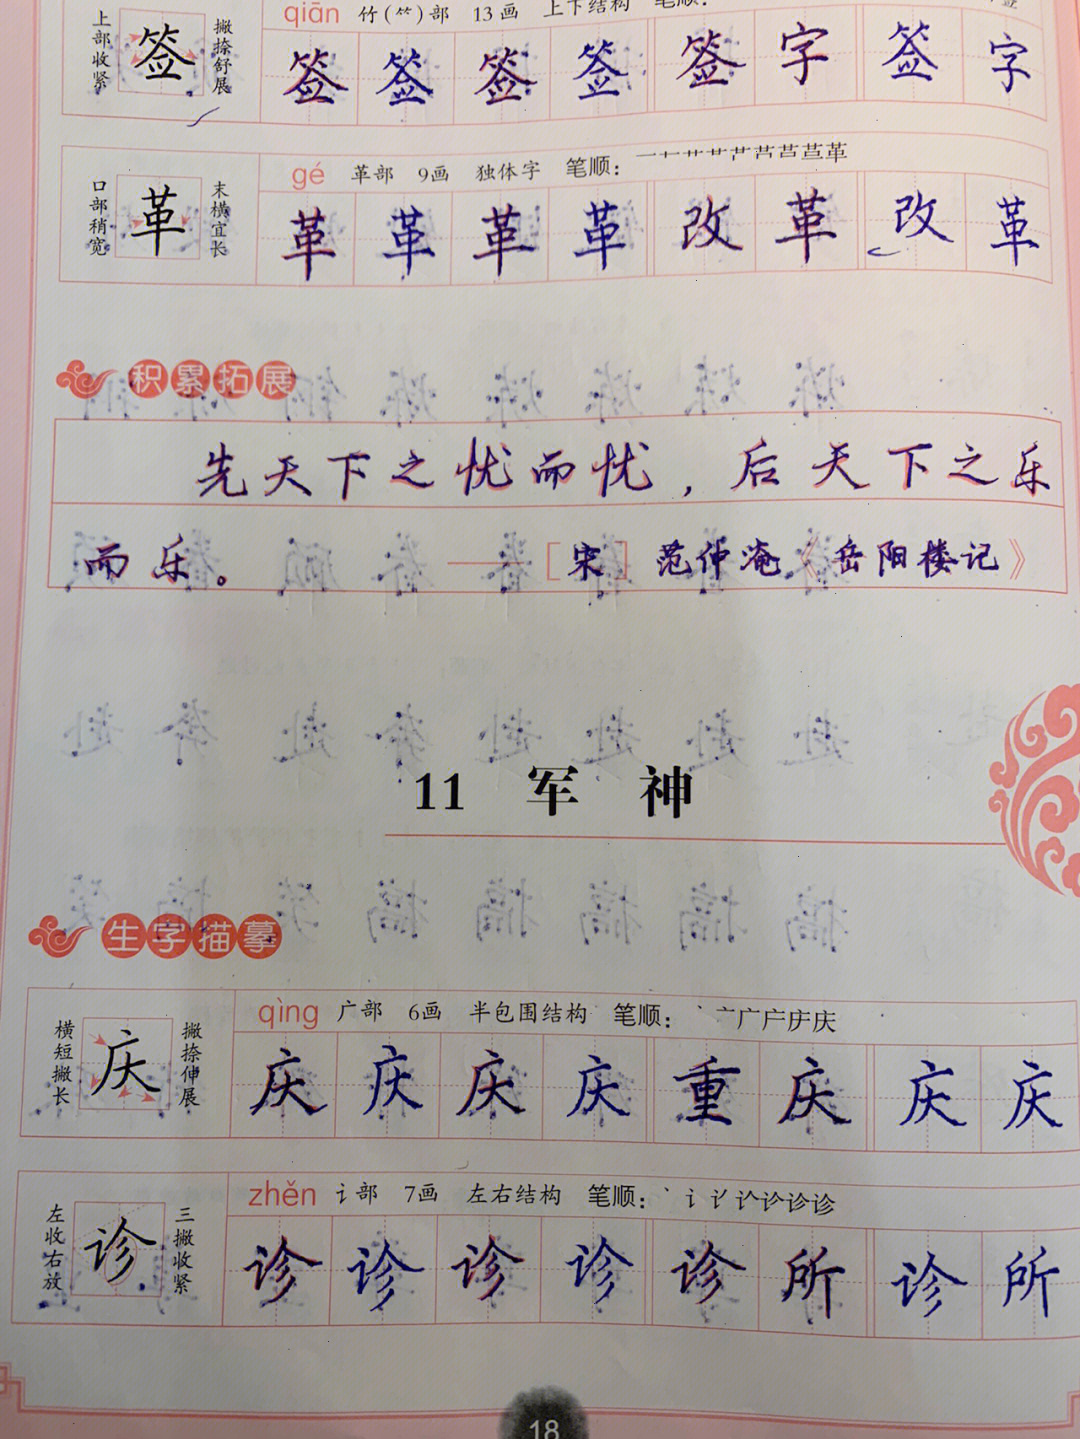 qiān 竹(⺮)部 13画 上下结构 笔顺:
上部收紧 签 撇捺舒展 签 签 签 签 签 字 签 字
gé 革部 9画 独体字 笔顺:
口部稍宽 革 末横宜长 革 革 革 革 改 革 改 革
积累拓展
先天下之忧而忧,后天下之乐
而乐。 ——[宋]范仲淹《岳阳楼记》
11 军 神
生字描摹
qìng 广部 6画 半包围结构 笔顺: 丶亠广庀庆庆
横短撇长 庆 撇捺伸展 庆 庆 庆 庆 重 庆 庆 庆
zhěn 讠部 7画 左右结构 笔顺:
左收右放 诊 三撇收紧 诊 诊 诊 诊 诊 所 诊 所
18